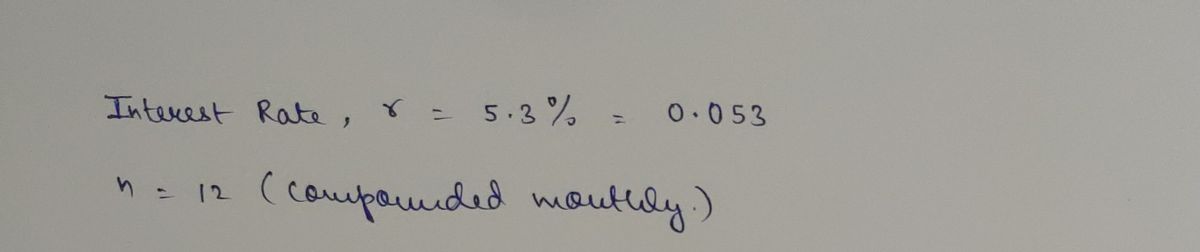 Interest Rate, r = 5.3% = 0.053
n = 12 (compounded monthly.)